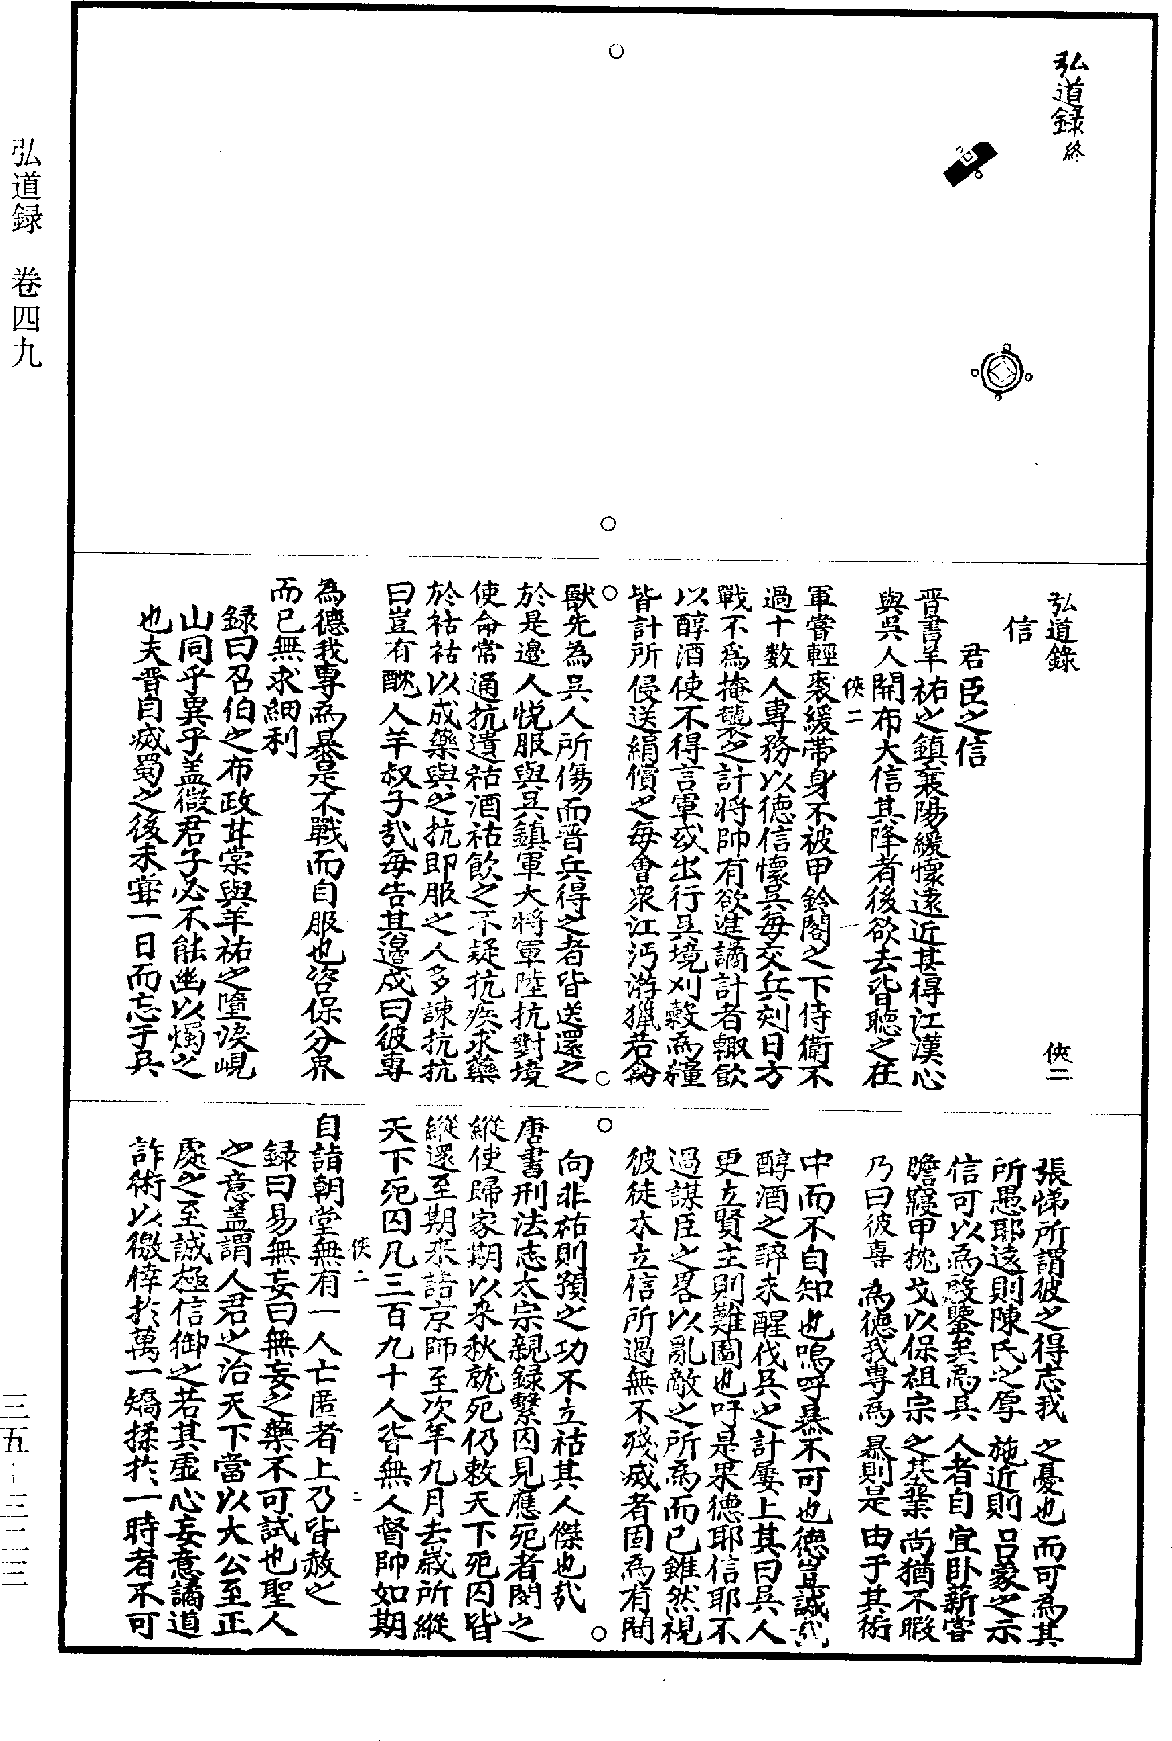 弘道録終
弘道録　俠二
信
君臣之信
晋書羊祐之鎮襄陽緩懷遠近甚得江漢心
與吳人開布大信其降者後欲去皆聽之在
俠二
軍嘗輕裘緩帶身不被甲鈴閣之下侍衛不
過十數人專務以德信懷吳每交兵刻日方
戰不為掩襲之計將帥有欲進譎計者輙飲
以醇酒使不得言軍或出行吳境刈穀為糧
皆計所侵送絹償之每會衆江沔游獵若禽
獸先為吳人所傷而晋兵得之者皆送還之
於是邊人悅服與吳鎮軍大將軍陸抗對境
使命常通抗遺祜酒祜飲之不疑抗疾求藥
於祜祜以成藥與之抗即服之人多諫抗抗
曰豈有酖人羊叔子哉每告其邊戍曰彼專
為德我專為暴是不戰而自服也咨保分界
而已無求細利
録曰召伯之布政甘棠與羊祐之墮淚峴
山同乎異乎盖微君子必不能幽以燭之
也夫晋自滅蜀之後未甞一日而忘于吳
張悌所謂彼之得志我之憂也而可為其
所愚耶遠則陳氏之厚施近則吕蒙之示
信可以為殷鑒矣為吳人者自宜卧薪嘗
膽寢甲枕戈以保祖宗之基業尚猶不暇
乃曰彼喜為德我專為暴則是由于其術
中而不自知也嗚呼暴不可也德豈誠哉
醇酒之醉求醒伐吳之計屢上其曰吳人
更立賢主則難圖也吁是果德耶信耶不
過謀臣之畧以亂敵之所為而已雖然視
彼徒木立信所過無不殘滅者固為有間
向非祐則預之功不立祜其人傑也哉
唐書刑法志太宗親録繫囚見應死者閔之
縱使歸家期以來秋就死仍敕天下死囚皆
縱還至期來詣京師至次年九月去歲所縱
天下死囚凡三百九十人皆無人督帥如期
俠二　二
自詣朝堂無有一人亡匿者上乃皆赦之
録曰易無妄曰無妄之藥不可試也聖人
之意蓋謂人君之治天下當以大公至正
處之至誠極信御之若其虛心妄意譎道
詐術以徼倖於萬一矯揉於一時者不可
弘道録　卷四九
三五-三二三